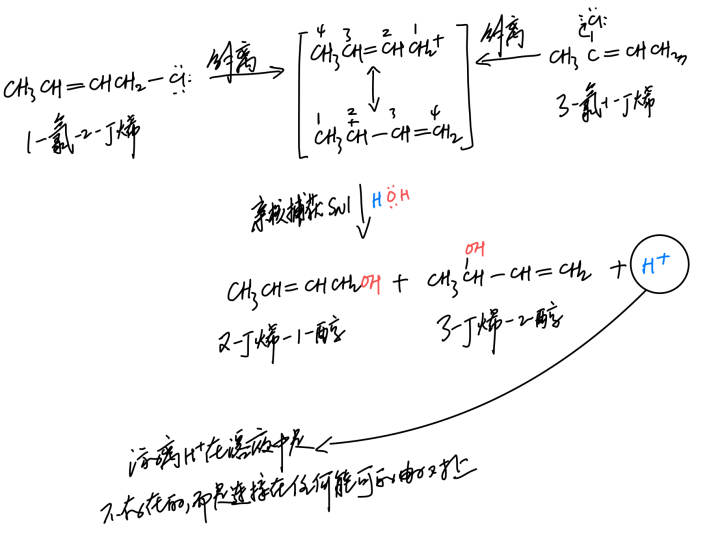 CH3CH=CHCH2-Cl:
1-氯-2-丁烯
解离
4 3 2 1
CH3CH=CHCH2+
1 2 3 4
CH3CH-CH=CH2
+
解离
:Cl:
CH3 C=CHCH2
3-氯-1-丁烯
亲核捕获SN1
HOH
CH3CH=CHCH2OH + CH3CH-CH=CH2 + H+
OH
2-丁烯-1-醇
3-丁烯-2-醇
游离H+在溶液中是
不存在的,而是连接在任何能可的电对上